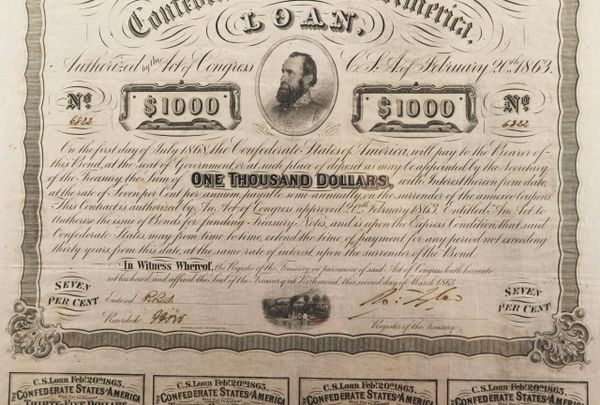 Confederate America.
LOAN.
Authorized by the Act of Congress C.S.A. of February 20th 1863.
No $1000 $1000 No
6322 6322
On the first day of July 1868, the Confederate States of America, will pay to the Bearer of
this Bond, at the seat of Government, or at such place of deposit as may be appointed by the Secretary
of the Treasury, the Sum of ONE THOUSAND DOLLARS, with Interest thereon from date,
at the rate of Seven per Cent per annum, payable semi-annually, on the surrender of the annexed Coupons.
This Contract is authorized by An Act of Congress approved 20th February 1863. Entitled An Act to
authorise the issue of Bonds for funding Treasury Notes, and is upon the Express Condition, that said
Confederate States, may from time to time, extend the time of payment, for any period not exceeding
thirty years from this date, at the same rate of interest upon the surrender of the Bond.
In Witness Whereof, the Register of the Treasury, in pursuance of said Act of Congress hath hereunto
set his hand, and affixed the Seal of the Treasury at Richmond, this second day of March 1863.
SEVEN PER CENT
Entered
Recorded
Register of the Treasury.
SEVEN PER CENT
C.S. Loan Feb. 20th 1863. C.S. Loan Feb. 20th 1863. C.S. Loan Feb. 20th 1863. C.S. Loan Feb. 20th 1863.
THE CONFEDERATE STATES OF AMERICA THE CONFEDERATE STATES OF AMERICA THE CONFEDERATE STATES OF AMERICA THE CONFEDERATE STATES OF AMERICA
THIRTY-FIVE DOLLARS